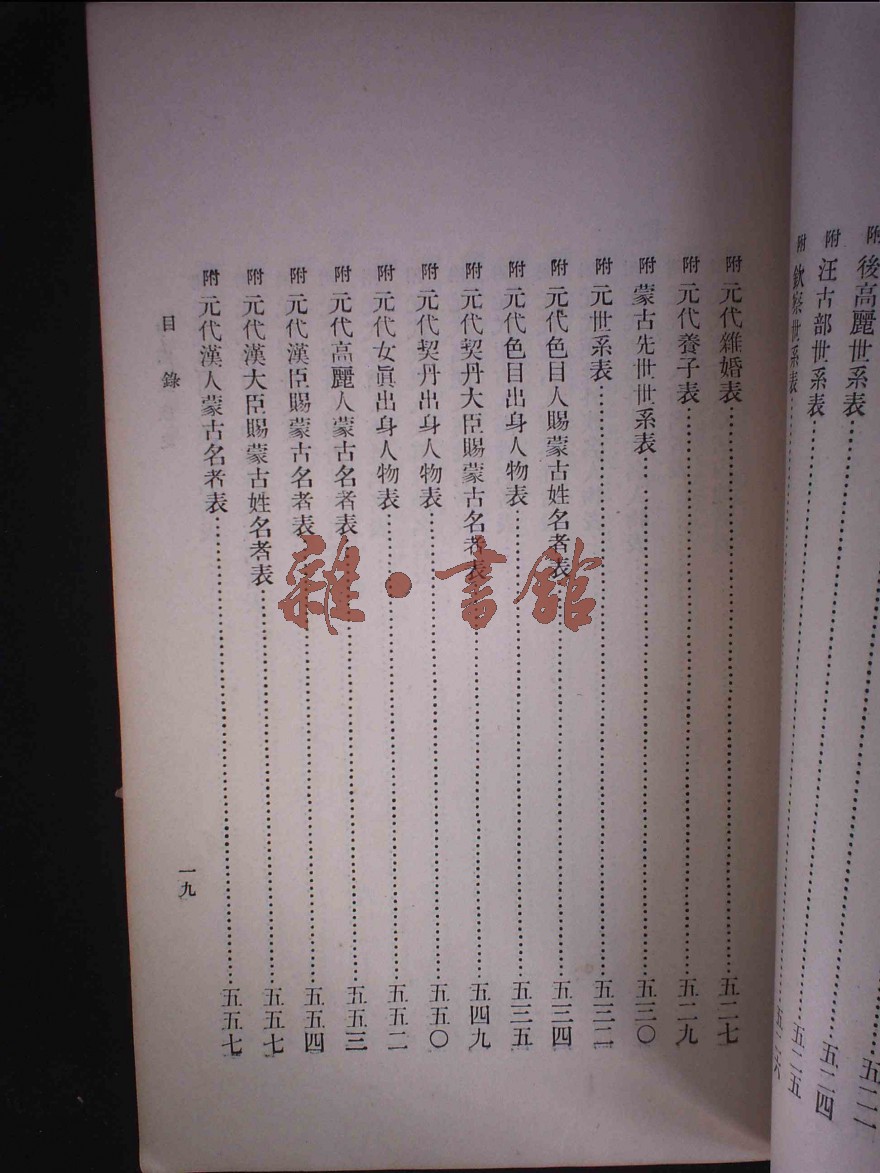 附 後高麗世系表
附 汪古部世系表……五二四
附 欽察世系表……五二五
附 元代雜婚表……五二七
附 元代養子表……五二九
附 蒙古先世世系表……五三〇
附 元世系表……五三二
附 元代色目人賜蒙古姓名者表……五三四
附 元代色目出身人物表……五三五
附 元代契丹大臣賜蒙古名者表……五四九
附 元代契丹出身人物表……五五〇
附 元代女眞出身人物表……五五二
附 元代高麗人蒙古名者表……五五三
附 元代漢臣賜蒙古名者表……五五四
附 元代漢大臣賜蒙古姓名者表……五五七
附 元代漢人蒙古名者表……五五七
目錄
一九
雜·書館